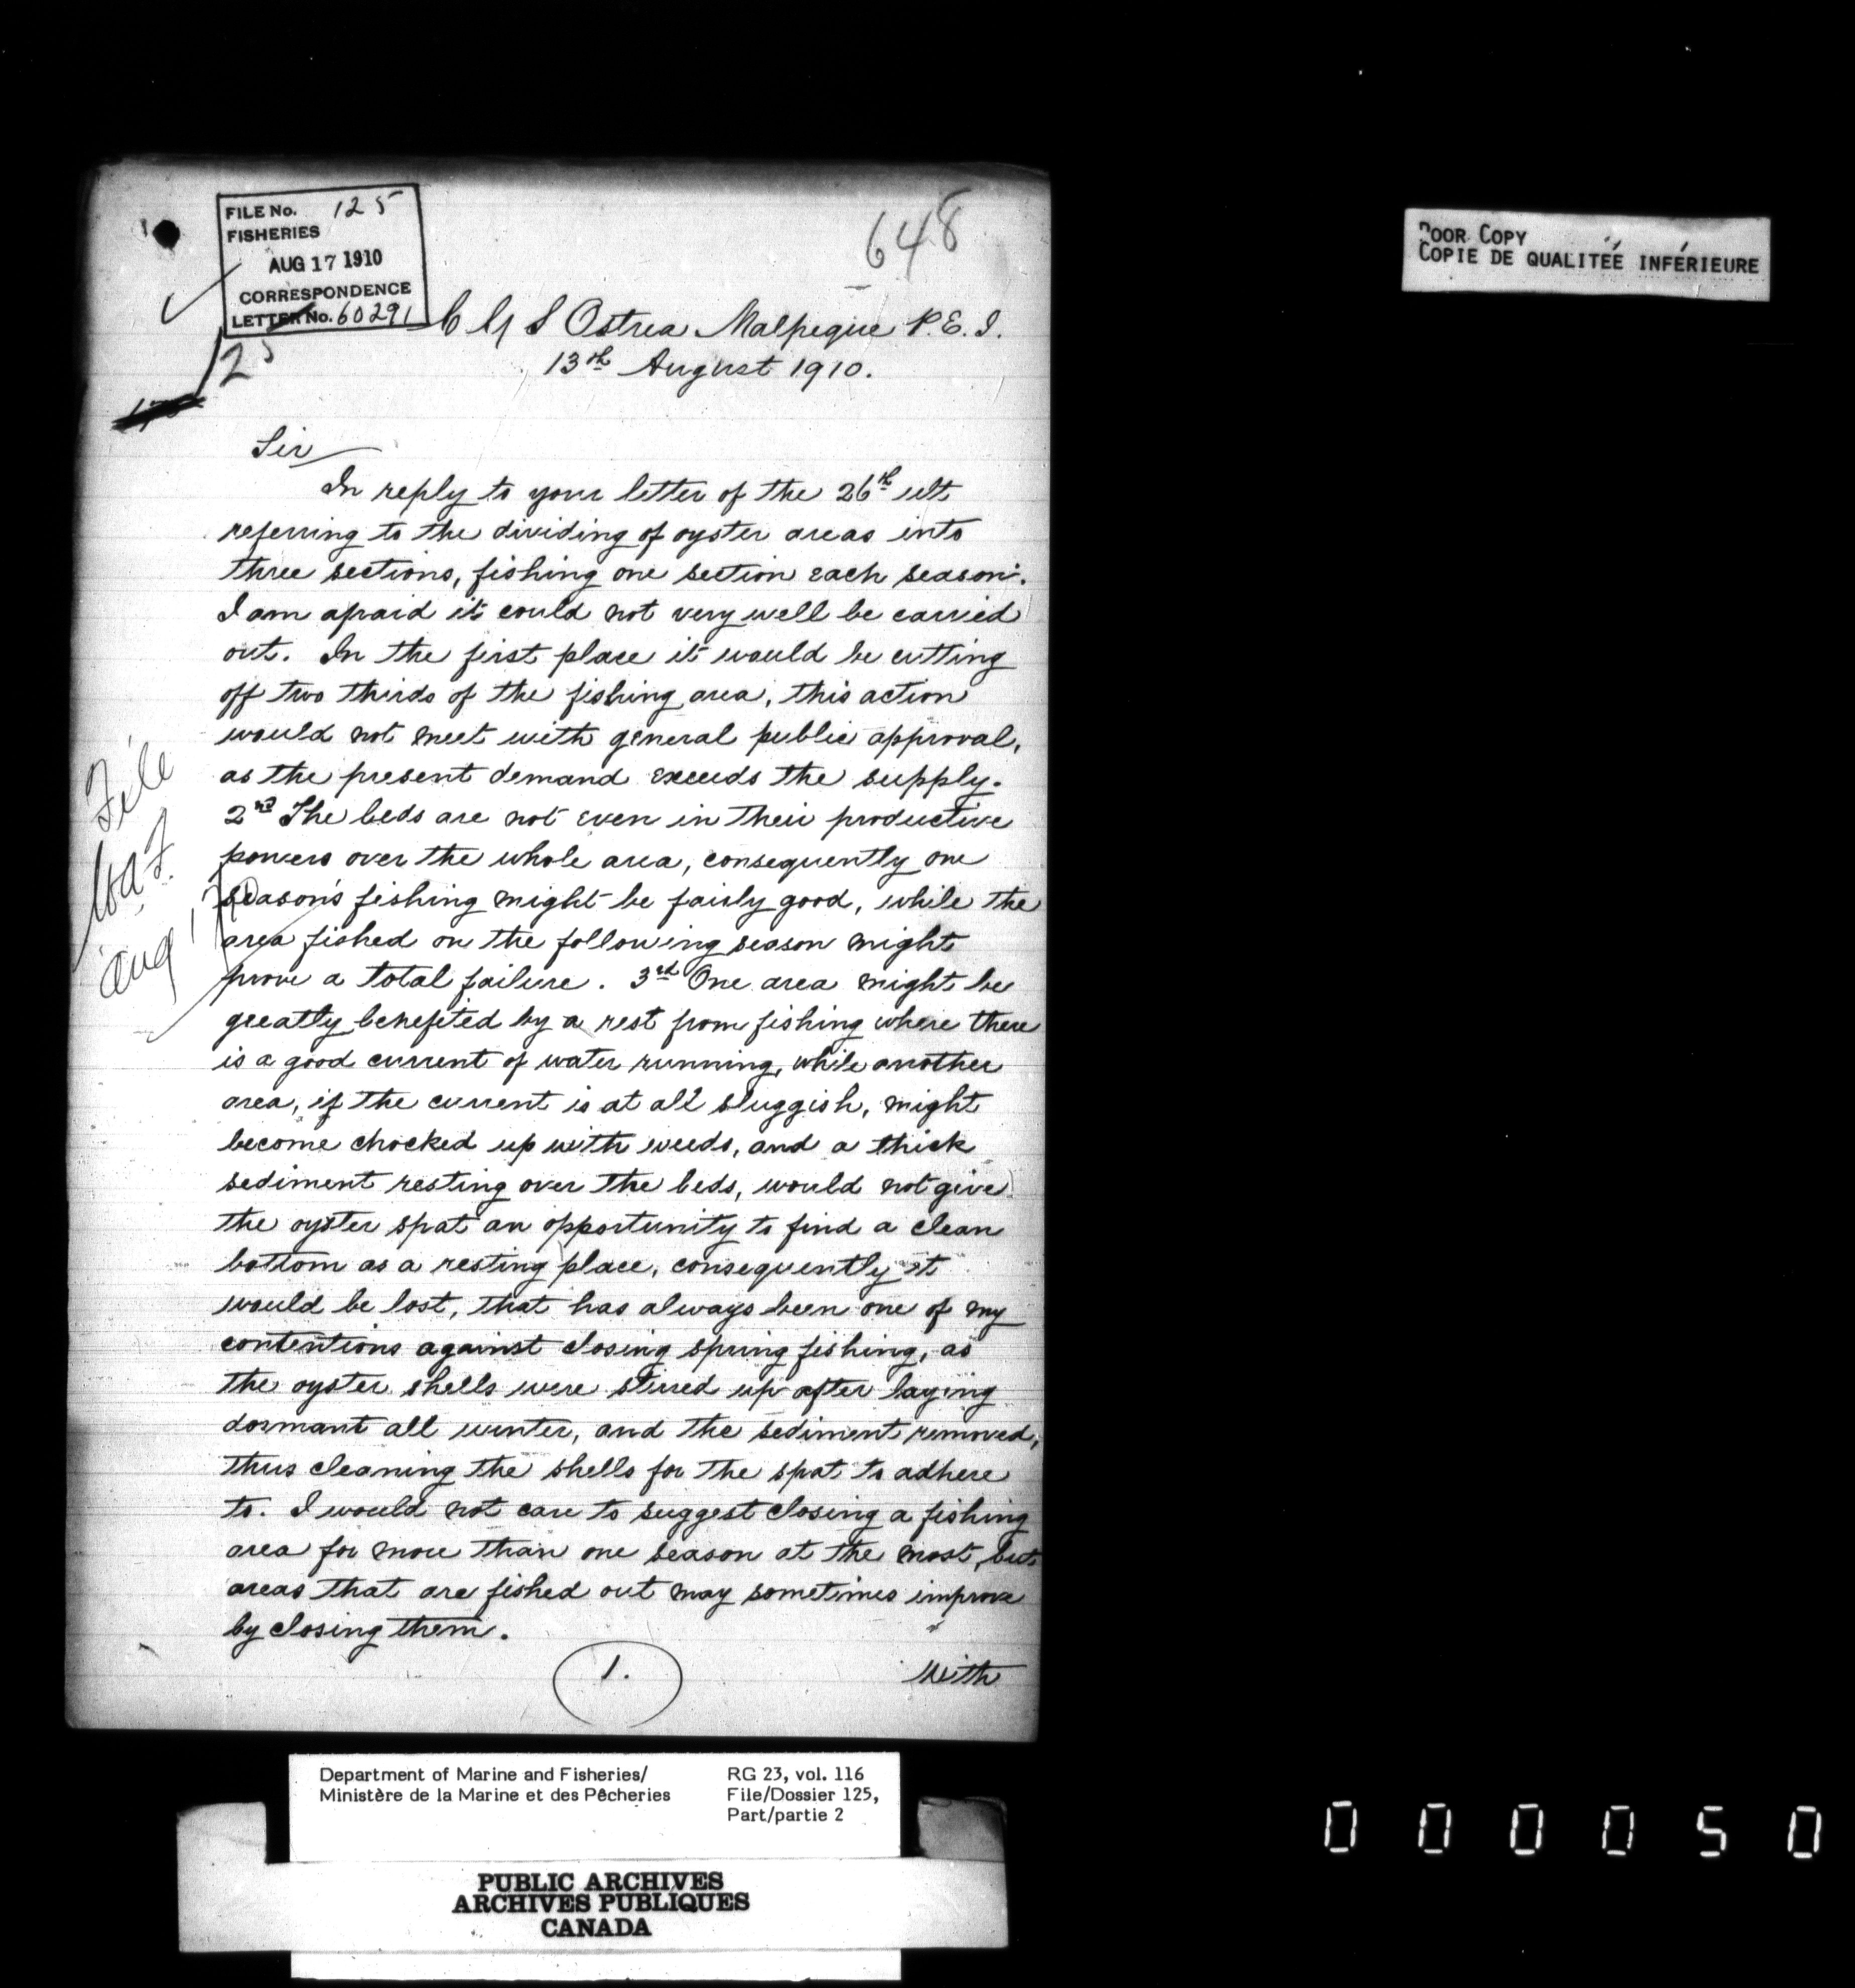 FILE No. 125
FISHERIES
AUG 17 1910
CORRESPONDENCE
LETTER No. 60291
648
125
POOR COPY
COPIE DE QUALITÉE INFÉRIEURE
C G S Ostrea Malpeque P.E.I.
13th August 1910.
Sir
In reply to your letter of the 26th ult
referring to the dividing of oyster areas into
three sections, fishing one section each season.
I am afraid it could not very well be carried
out. In the first place it would be cutting
off two thirds of the fishing area, this action
would not meet with general public approval,
as the present demand exceeds the supply.
2nd The beds are not even in their productive
powers over the whole area, consequently one
season's fishing might be fairly good, while the
area fished on the following season might
prove a total failure. 3rd One area might be
greatly benefited by a rest from fishing where there
is a good current of water running, while another
area, if the current is at all sluggish, might
become chocked up with weeds, and a thick
sediment resting over the beds, would not give
the oyster spat an opportunity to find a clean
bottom as a resting place, consequently it
would be lost, that has always been one of my
contentions against closing spring fishing, as
the oyster shells were stirred up after laying
dormant all winter, and the sediment removed,
thus cleaning the shells for the spat to adhere
to. I would not care to suggest closing a fishing
area for more than one season at the most, but
areas that are fished out may sometimes improve
by closing them.
1.
With
File
Aug
Department of Marine and Fisheries/
Ministère de la Marine et des Pêcheries
RG 23, vol. 116
File/Dossier 125,
Part/partie 2
PUBLIC ARCHIVES
ARCHIVES PUBLIQUES
CANADA
000050